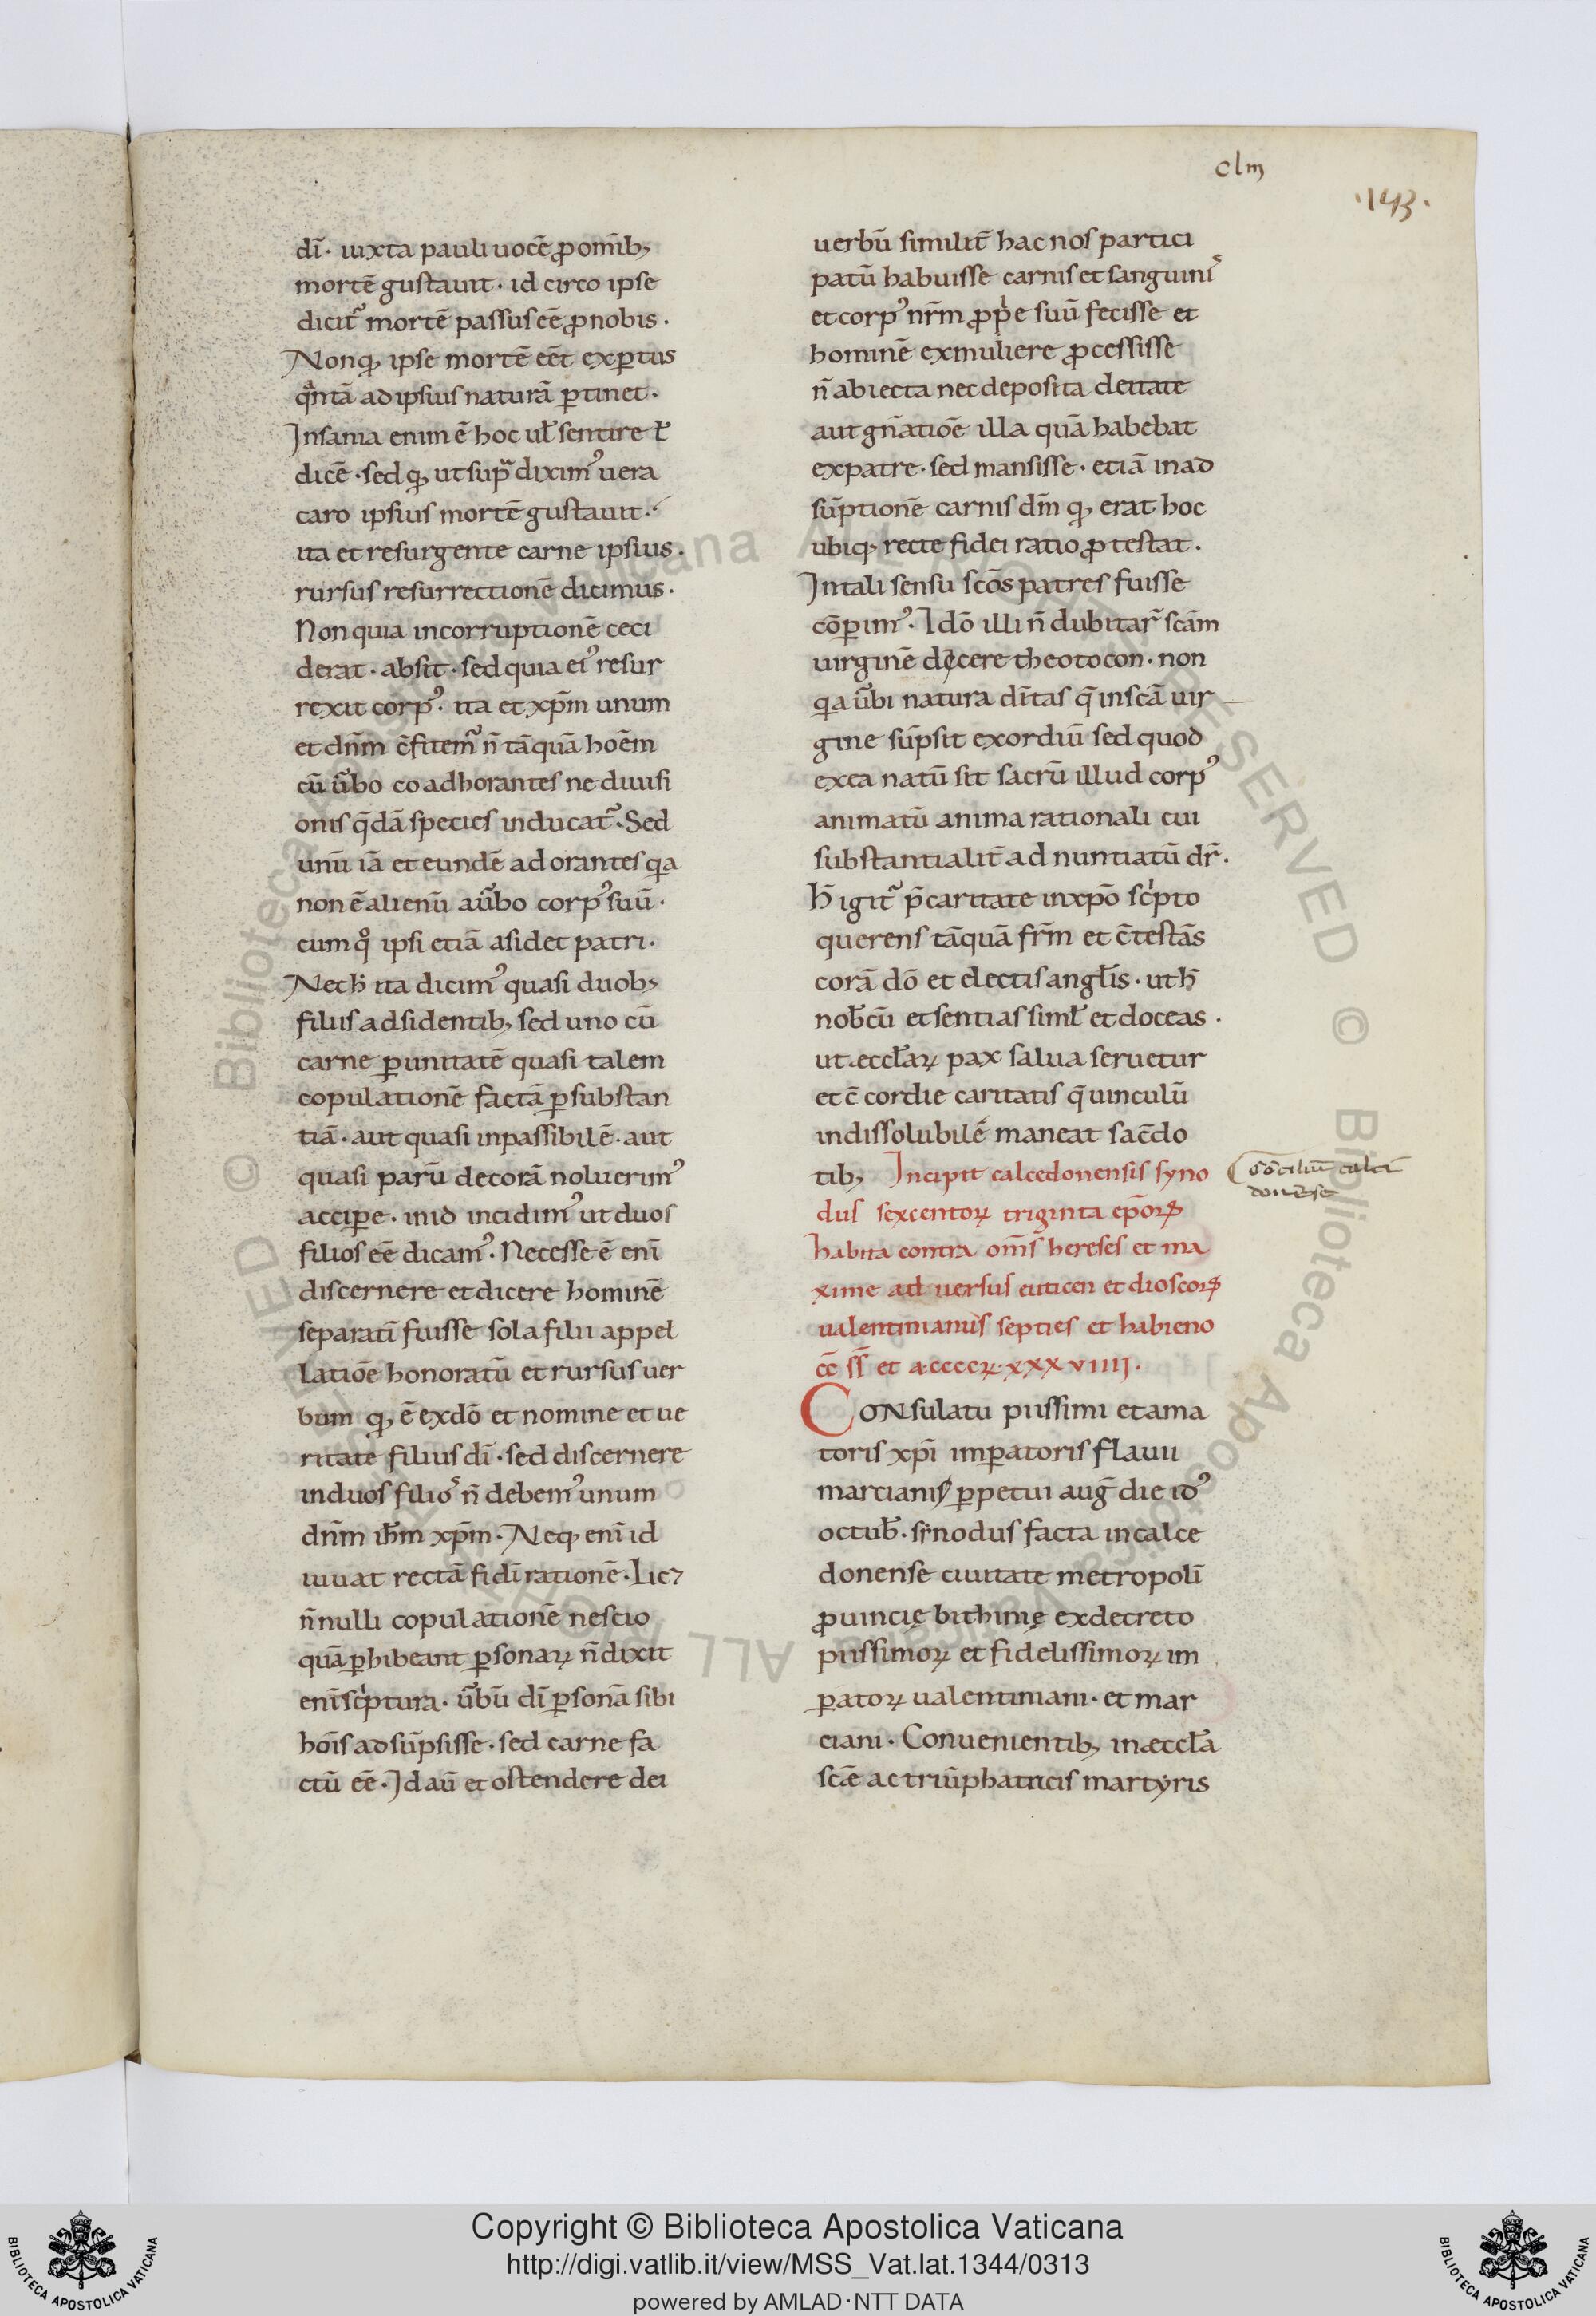 clm
·143·
dī· iuxta pauli uocē ꝓ omīb;
mortē gustauit· id circo ipse
dicit᷑ mortē passus eē ꝓ nobis·
Nonq, ipse mortē eēt exꝑtus
qͣntā ad ipsius naturā ꝑtinet·
Insania enim ē hoc ul̄ sentire ł
dicē· sed q, ut supͣ diximꝰ uera
caro ipsius mortē gustauit·
ita et resurgente carne ipsius·
rursus resurrectionē dicimus·
Non quia incorruptionē ceci
derat· absit· sed quia eiꝰ resur
rexit corpꝰ· ita et xp̄m unum
et dn̄m c̄fitem᷑ n̄ tāquā hoēm
cū ūbo coadhorantes ne diuisi
onis q̄dā species inducat᷑· Sed
unū iā et eundē adorantes qa
non ē alienū a ūbo corpꝰ suū·
cum qͦ ipsi etiā asidet patri·
Nec h̄ ita dicimꝰ quasi duob;
filiis adsidentib; sed uno cū
carne ꝑ unitatē quasi talem
copulationē factā ꝑ substan
tiā· aut quasi inpassibilē· aut
quasi parū decorā noluerimꝰ
acciꝑe· in id incidimꝰ ut duos
filios eē dicamꝰ· Necesse ē enī
discernere et dicere hominē
separatī fuisse sola filii appel
latiōe honoratū et rursus uer
bum q, ē ex dō et nomine et ue
ritate filius dī· sed discernere
in duos filios n̄ debemꝰ unum
dn̄m ih̄m xp̄m· Neq, enī id
iuuat rectā fidī rationē· Lic⁊
n̄nulli copulationē nescio
quā ꝑhibeant ꝑsonaꝝ n̄ dixit
enī scͥptura· ūbū dī ꝑsonā sibi
hoīs adsūpsisse· sed carne fa
ctū eē· Id aū et ostendere dei
uerbū similit̄ hac nos partici
patū habuisse carnis et sanguinis
et corpꝰ nr̄m ꝓpͥe suū fecisse et
hominē ex muliere ꝓcessisse
n̄ abiecta nec deposita deitate
aut gn̄atiōe illa quā habebat
ex patre· sed mansisse· etiā in ad
sūptionē carnis dm̄ q, erat hoc
ubiq, recte fidei ratio ꝓtestat·
In tali sensu scōs patres fuisse
cōꝑimꝰ· Idō illi n̄ dubitar̄ scām
uirginē dicere theotocon· non
qa ūbi natura dītas q̄ in scā uir
gine sūpsit exordiū sed quod
ex ea natū sit sacrū illud corpꝰ
animatū anima rationali cui
substantialit̄ adnuntiatū dr̄·
h̄ igit᷑ p̄ caritate in xp̄o scͥpto
querens tāquā fr̄m et c̄testās
corā dō et electis angl̄is· ut h̄
nob̄cū et sentias siml̄ et doceas·
ut æccl̄aꝝ pax salua seruetur
et c̄cordie caritatis q̄ uinculū
indissolubilē maneat sac̄do
tib; Incipit calcedonensis syno
dus sexcentoꝝ triginta ep̄oꝝ
habita contra om̄s hereses et ma
xime aduersus euticen et dioscoꝝ
ualentinianus septies et habieno
cc̄ ss̄ et a ccccꝝ· xxxviiii·
Consulatu piissimi et ama
toris xp̄i imꝑatoris flauii
marciani ꝑpetui auḡ die idꝰ
octub̄· synodus facta in calce
donense ciuitate metropolī
ꝓuincię bithinię ex decreto
piissimoꝝ et fidelissimoꝝ im
ꝑatoꝝ ualentiniani· et mar
ciani· Conuenientib; in æccl̄a
scæ ac triūphatricis martyris
Cōciliū calci
donēse
Copyright © Biblioteca Apostolica Vaticana
http://digi.vatlib.it/view/MSS_Vat.lat.1344/0313
powered by AMLAD·NTT DATA
BIBLIOTECA APOSTOLICA VATICANA
BIBLIOTECA APOSTOLICA VATICANA